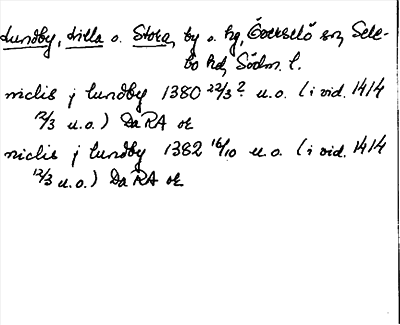 Lundby, Lilla o. Stora, by o. hg, Överselö sn, Sele-
bo hd, Södm. l.
niclis j lundby 1380 22/3? u.o. (i vid. 1414
12/3 u.o.) DaRA or
niclis j lundby 1382 16/10 u.o. (i vid. 1414
12/3 u.o.) DaRA or